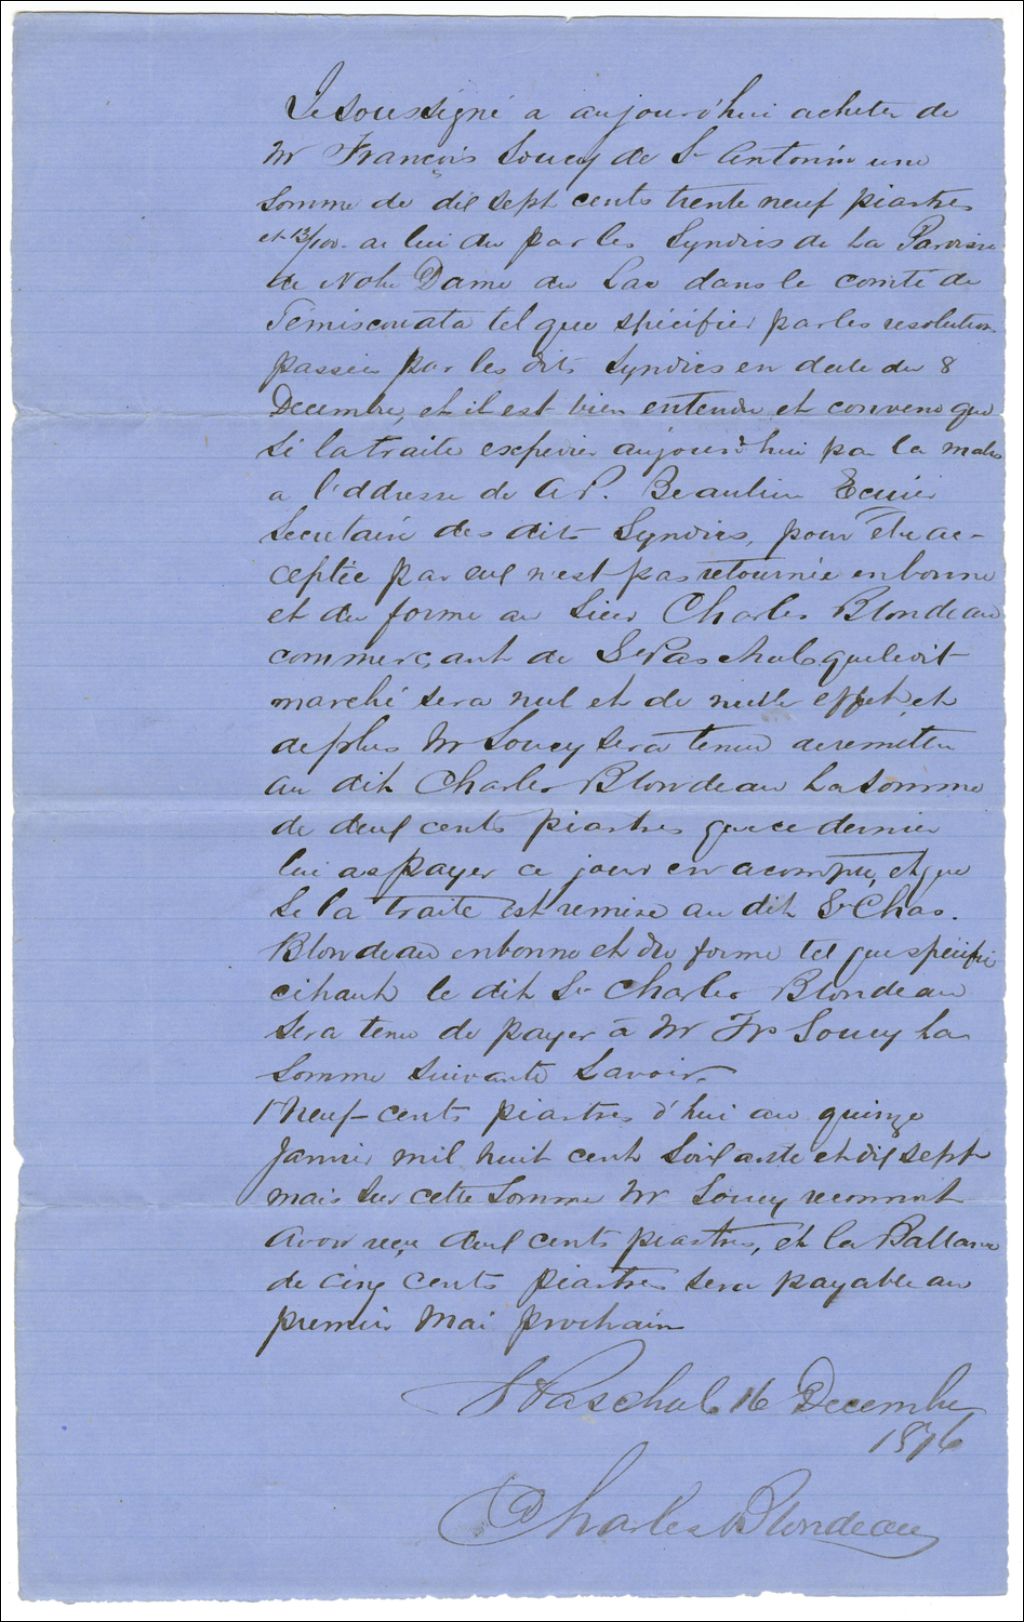 Le soussigné a aujourd'hui acheter de
Mr François Soucy de St Antonin une
Somme de dix sept cents trente neuf piastres
et 13/100 a lui du par les Syndics de La Paroisse
de Notre Dame du Lac dans le comté de
Témiscouata tel que spécifier par les resolution
passeés par les dits Syndics en date du 8
Decembre, et il est bien entendu et convenu que
si la traite expedier aujourd'hui par la malle
a l'addresse de A P. Beaulieu Ecuier
Secretaire des dits Syndics, pour être ac-
ceptée par eux n'est pas retournée en bonne
et du forme au Sieur Charles Blondeau
commerçant de St Paschal que le dit
marché sera nul et de nulle effet, et
de plus Mr Soucy sera tenu de remettre
au dit Charles Blondeau La Somme
de deux cents piastres que ce dernier
lui a payer ce jour en acompte, et que
Si la traite est remise au dit Sr Chas.
Blondeau en bonne et du forme tel que spécifié
ci haut le dit Sr Charles Blondeau
sera tenu de payer à Mr Frs Soucy La
Somme suivante Savoir.
Neuf cents piastres d'hui au quinze
Janvier mil huit cent soixante et dix sept
mais sur cette Somme Mr Soucy reconnait
avoir reçu deux cents piastres, et la Ballance
de cinq cents piastres sera payable au
premier Mai prochain
St Paschal 16 Decembre
1876
Charles Blondeau